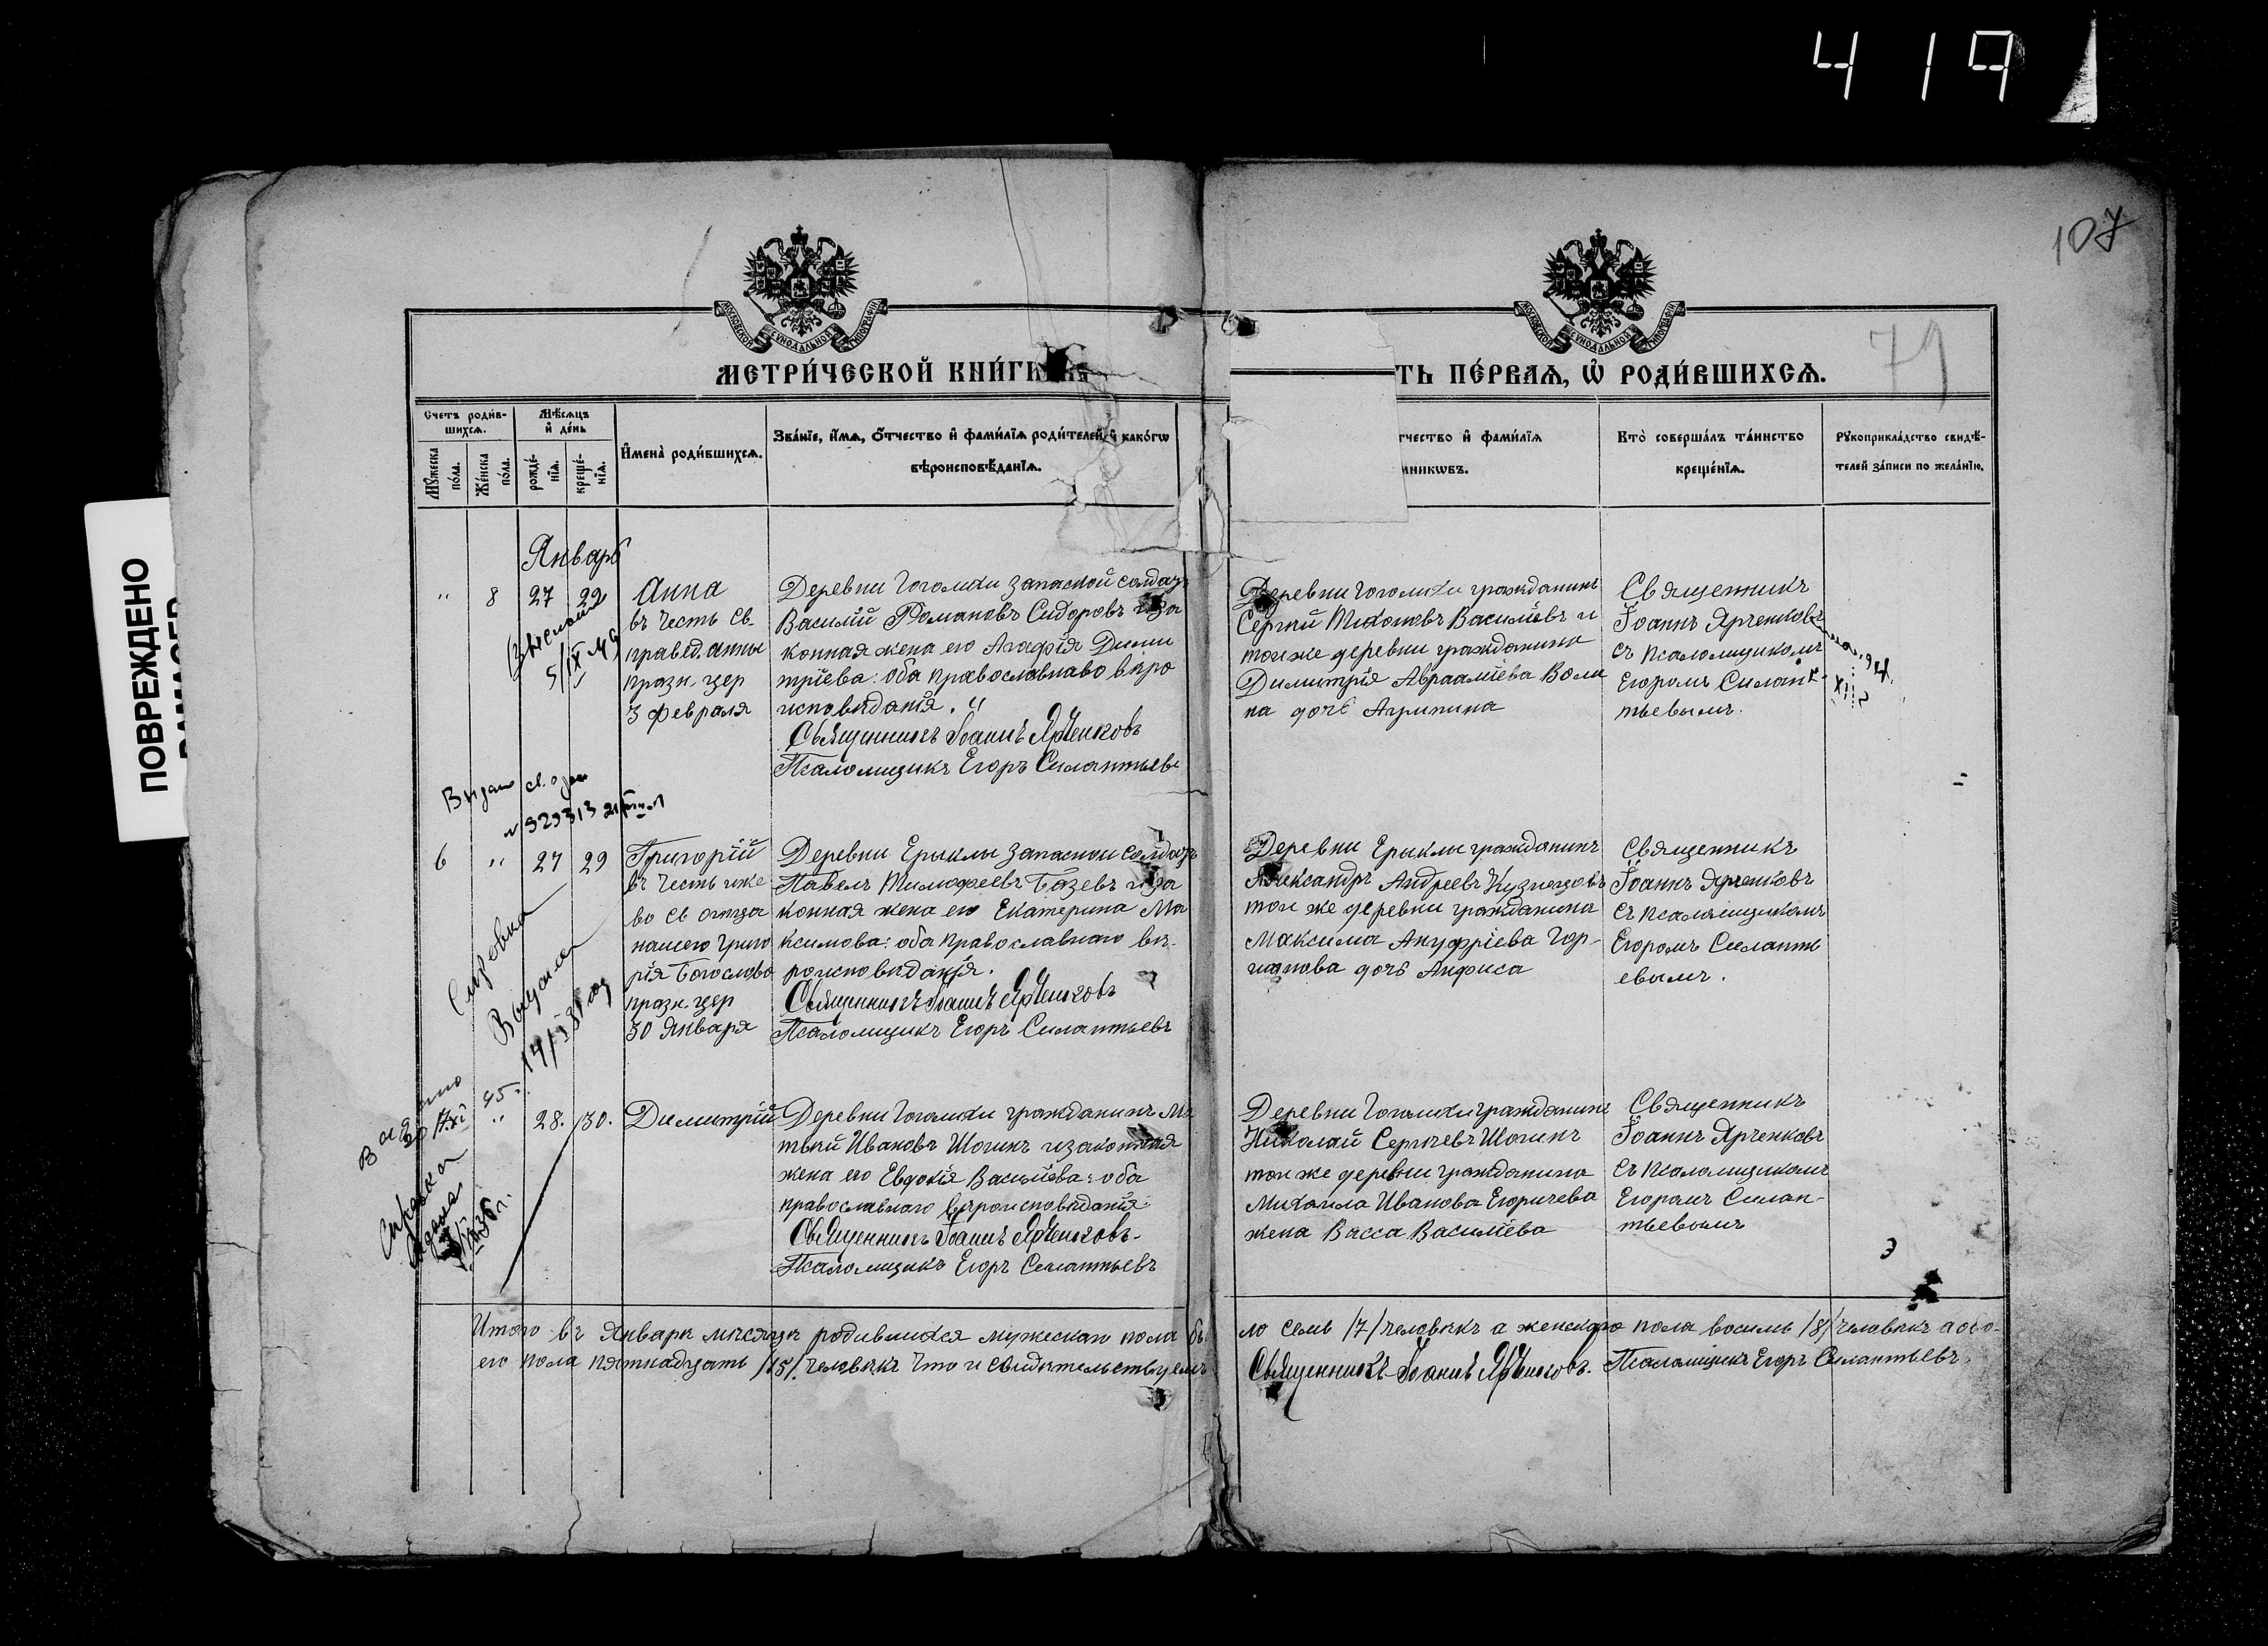 419
107
71
ПОВРЕЖДЕНО
МОСКОВСКОЙ СѴНОДАЛЬНОЙ ТИПОГРАФІИ
МОСКОВСКОЙ СѴНОДАЛЬНОЙ ТИПОГРАФІИ
МЕТРИ́ЧЕСКОЙ КНИ́ГИ
ТЬ ПЕ́РВАѦ, Ѡ҆ РОДИ́ВШИХСѦ.
Счетъ роди́в-
шихсѧ.
Мѣ́сѧцъ
и҆ де́нь
Мꙋ́жеска
по́ла.
Же́нска
по́ла.
рожде́-
нїѧ.
креще́-
нїѧ.
И҆мена̀ роди́вшихсѧ.
Зва́нїе, и҆́мѧ, ѻ҆́тчество и҆ фами́лїѧ роди́телей, и҆ како́гѡ
вѣроисповѣ́данїѧ.
тчество и҆ фами́лїѧ
мникѡвъ.
Кто̀ соверша́лъ та́инство
креще́нїѧ.
Рꙋкоприкла́дство свидѣ́-
телей за́писи по жела́нїю.
Январь
" 8 27 29
Анна
въ честь Св.
правед. Анны
празн. цер
3 февраля
Деревни Гоголихи запасной солдатъ
Василій Романовъ Сидоровъ и за
конная жена его Агафія Дими
тріева: оба православнаво вѣро
исповѣданія. "
Священникъ Іоаннъ Ярченковъ
Псаломщикъ Егоръ Силантьевъ
Деревни Гоголихи гражданинъ
Сергѣй Тихоновъ Васильевъ и
тойже деревни гражданина
Димитрія Авраамїева Воли
на дочь Агрипина
Священникъ
Іоаннъ Ярченковъ
съ псаломщикомъ
Егоромъ Силан-
тьевымъ.
5/IX 49
Выдано св. о
№ 929313
6 " 27 29
Григорій
въ честь иже
во св отца
нашего Григо
рія Богослова
празн. цер
30 Января
Деревни Ерыклы запасной солдатъ
Павелъ Тимофеевъ Базевъ и за
конная жена его Екатерина Ма
ксимова: оба православнаго вѣ-
роисповѣданія.
Священникъ Іоаннъ Ярченковъ
Псаломщикъ Егоръ Силантьевъ
Деревни Ерыклы гражданинъ
Александръ Андреевъ Кузнецовъ
той же деревни гражданина
Максима Ануфріева Гор-
шкова дочь Анфиса
Священникъ
Іоаннъ Ярченковъ
съ псаломщикомъ
Егоромъ Силанть
евымъ.
Справка
Выдана
Выдано
" 28. 30.
Димитрій
Деревни Гоголихи гражданинъ Ма
твѣй Ивановъ Шогинъ и законная
жена его Евдокія Васильева: оба
православнаго вѣроисповѣданія
Священникъ Іоаннъ Ярченковъ
Псаломщикъ Егоръ Силантьевъ
Деревни Гоголихи гражданинъ
Николай Сергѣевъ Шогинъ
той же деревни гражданина
Михаила Иванова Егоричева
жена Васса Васильева
Священникъ
Іоаннъ Ярченковъ
съ псаломщикомъ
Егоромъ Силан-
тьевымъ
Справка
Итого въ Январѣ мѣсяцѣ родившихся мужескаго пола бы
ло семь /7/ человѣкъ а женскаго пола восимь /8/ человѣкъ а обо-
его пола пятнадцать /15/. человѣкъ что и свидѣтельствуемъ
Священникъ Іоаннъ Ярченковъ. Псаломщикъ Егоръ Силантьевъ.